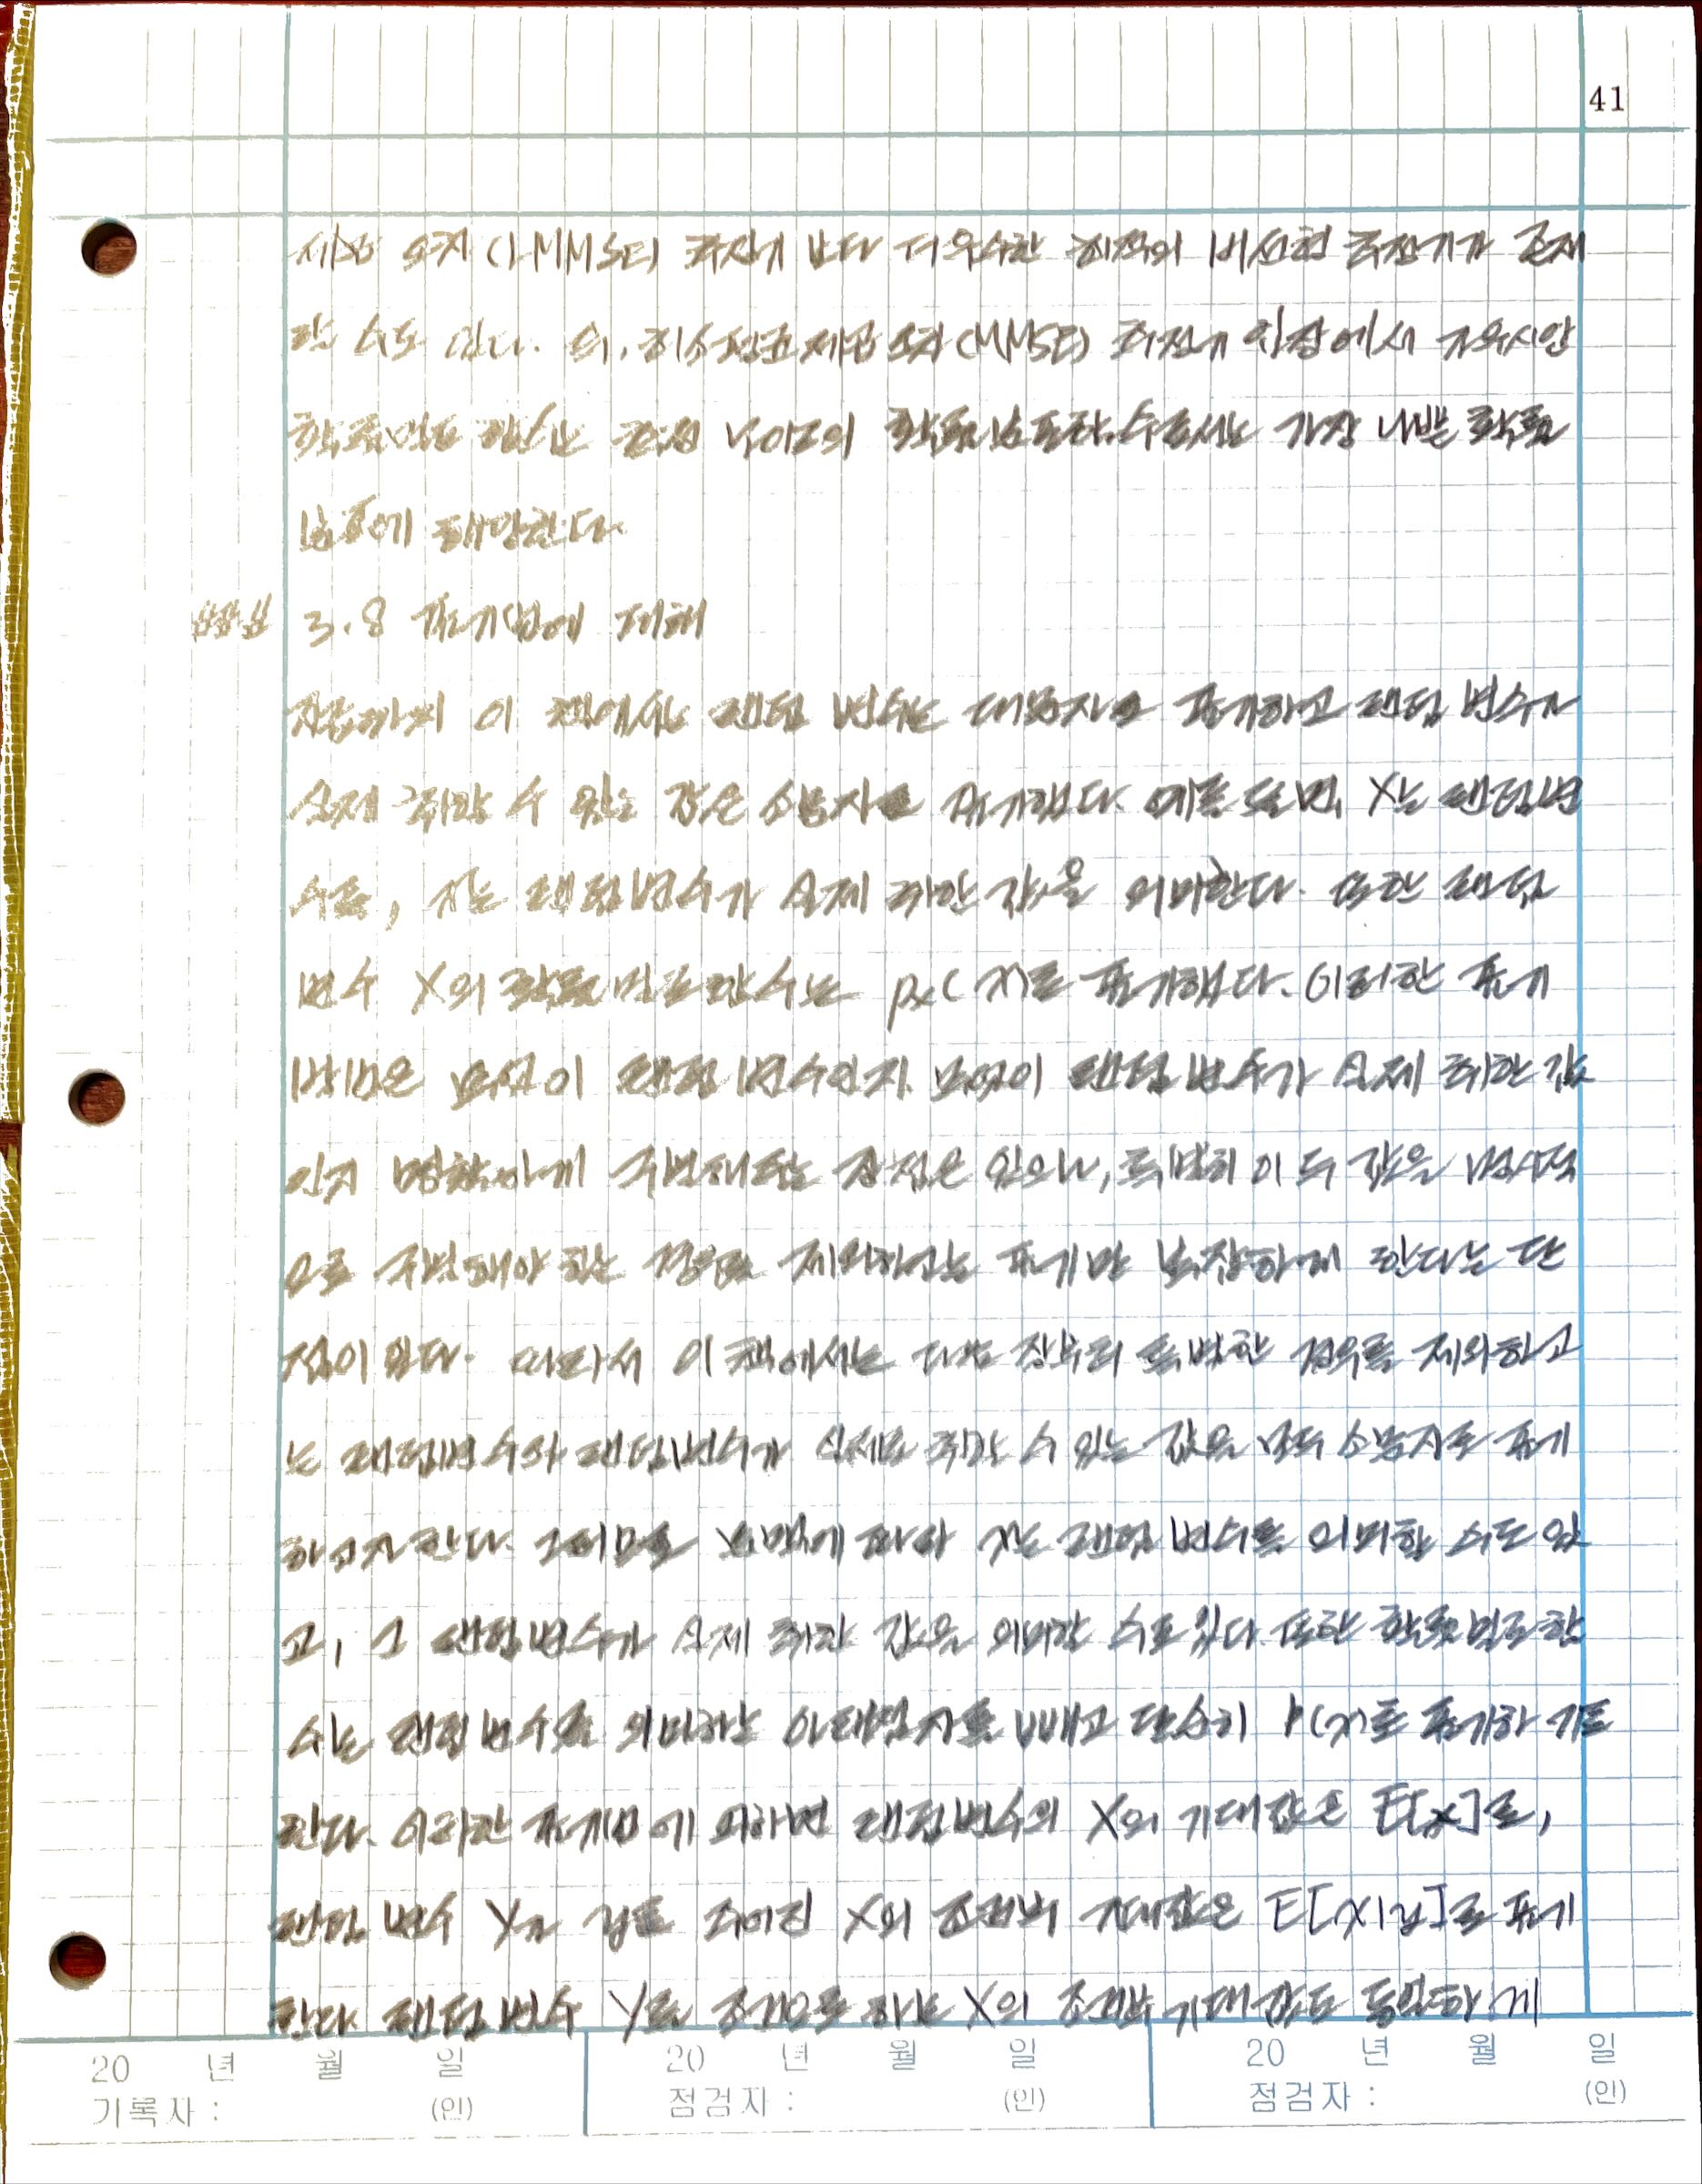 41
제곱 오차 (LMMSE) 추정기 보다 더 우수한 최적의 비선형 추정기가 존재
할 수도 있다. 즉, 최소평균제곱 오차(MMSE) 추정기 입장에서 가우시안
확률밀도 함수는 측정 노이즈의 확률분포함수로서는 가장 나쁜 확률
분포에 해당한다.
3.8 표기법에 대해
지금까지 이 책에서는 랜덤 변수는 대문자로 표기하고 랜덤 변수가
실제 취할 수 있는 값은 소문자로 표기했다. 예를 들면, X는 랜덤변
수를, x는 랜덤변수가 실제 취한 값을 의미한다. 또한 랜덤
변수 X의 확률밀도함수는 px(x)로 표기했다. 이러한 표기
방법은 무엇이 랜덤 변수인지 무엇이 랜덤 변수가 실제 취한 값
인지 명확하게 구별해주는 장점은 있으나, 특별히 이 두 값을 명시적
으로 구별해야 하는 경우를 제외하고는 표기만 복잡하게 한다는 단
점이 있다. 따라서 이 책에서는 다음 장부터 특별한 경우를 제외하고
는 랜덤변수와 랜덤변수가 실제로 취할 수 있는 값을 모두 소문자로 표기
하고자 한다. 그러므로 문맥에 따라 x는 랜덤 변수를 의미할 수도 있
고, 그 랜덤변수가 실제 취한 값을 의미할 수도 있다. 또한 확률밀도함
수는 랜덤 변수를 의미하는 아래첨자를 빼고 단순히 p(x)로 표기하기로
한다. 이러한 표기법에 의하면 랜덤변수의 X의 기대값은 E[x]로,
랜덤 변수 Y가 y로 주어진 X의 조건부 기대값은 E[x|y]로 표기
한다. 랜덤 변수 Y를 조건으로 하는 X의 조건부 기대값도 동일하게
20 년 월 일 20 년 월 일 20 년 월 일
기록자 : (인) 점검자 : (인) 점검자 : (인)